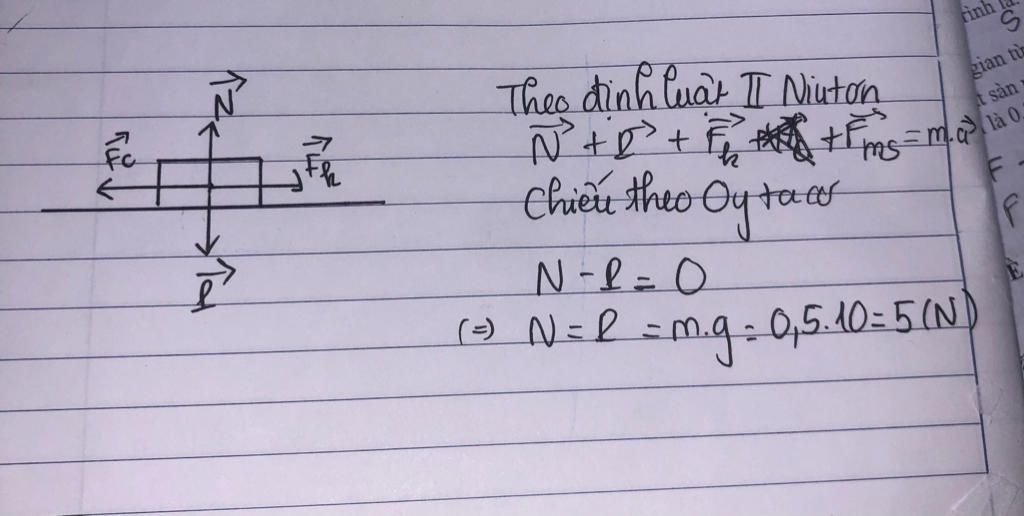 N
Fc
Fk
P
Theo định luật II Niutơn
N + P + Fk + Fms = m.a
Chiếu theo Oy ta có
N - P = 0
(=) N = P = m.g = 0,5.10 = 5 (N)
gian từ
t sàn
là 0,
F